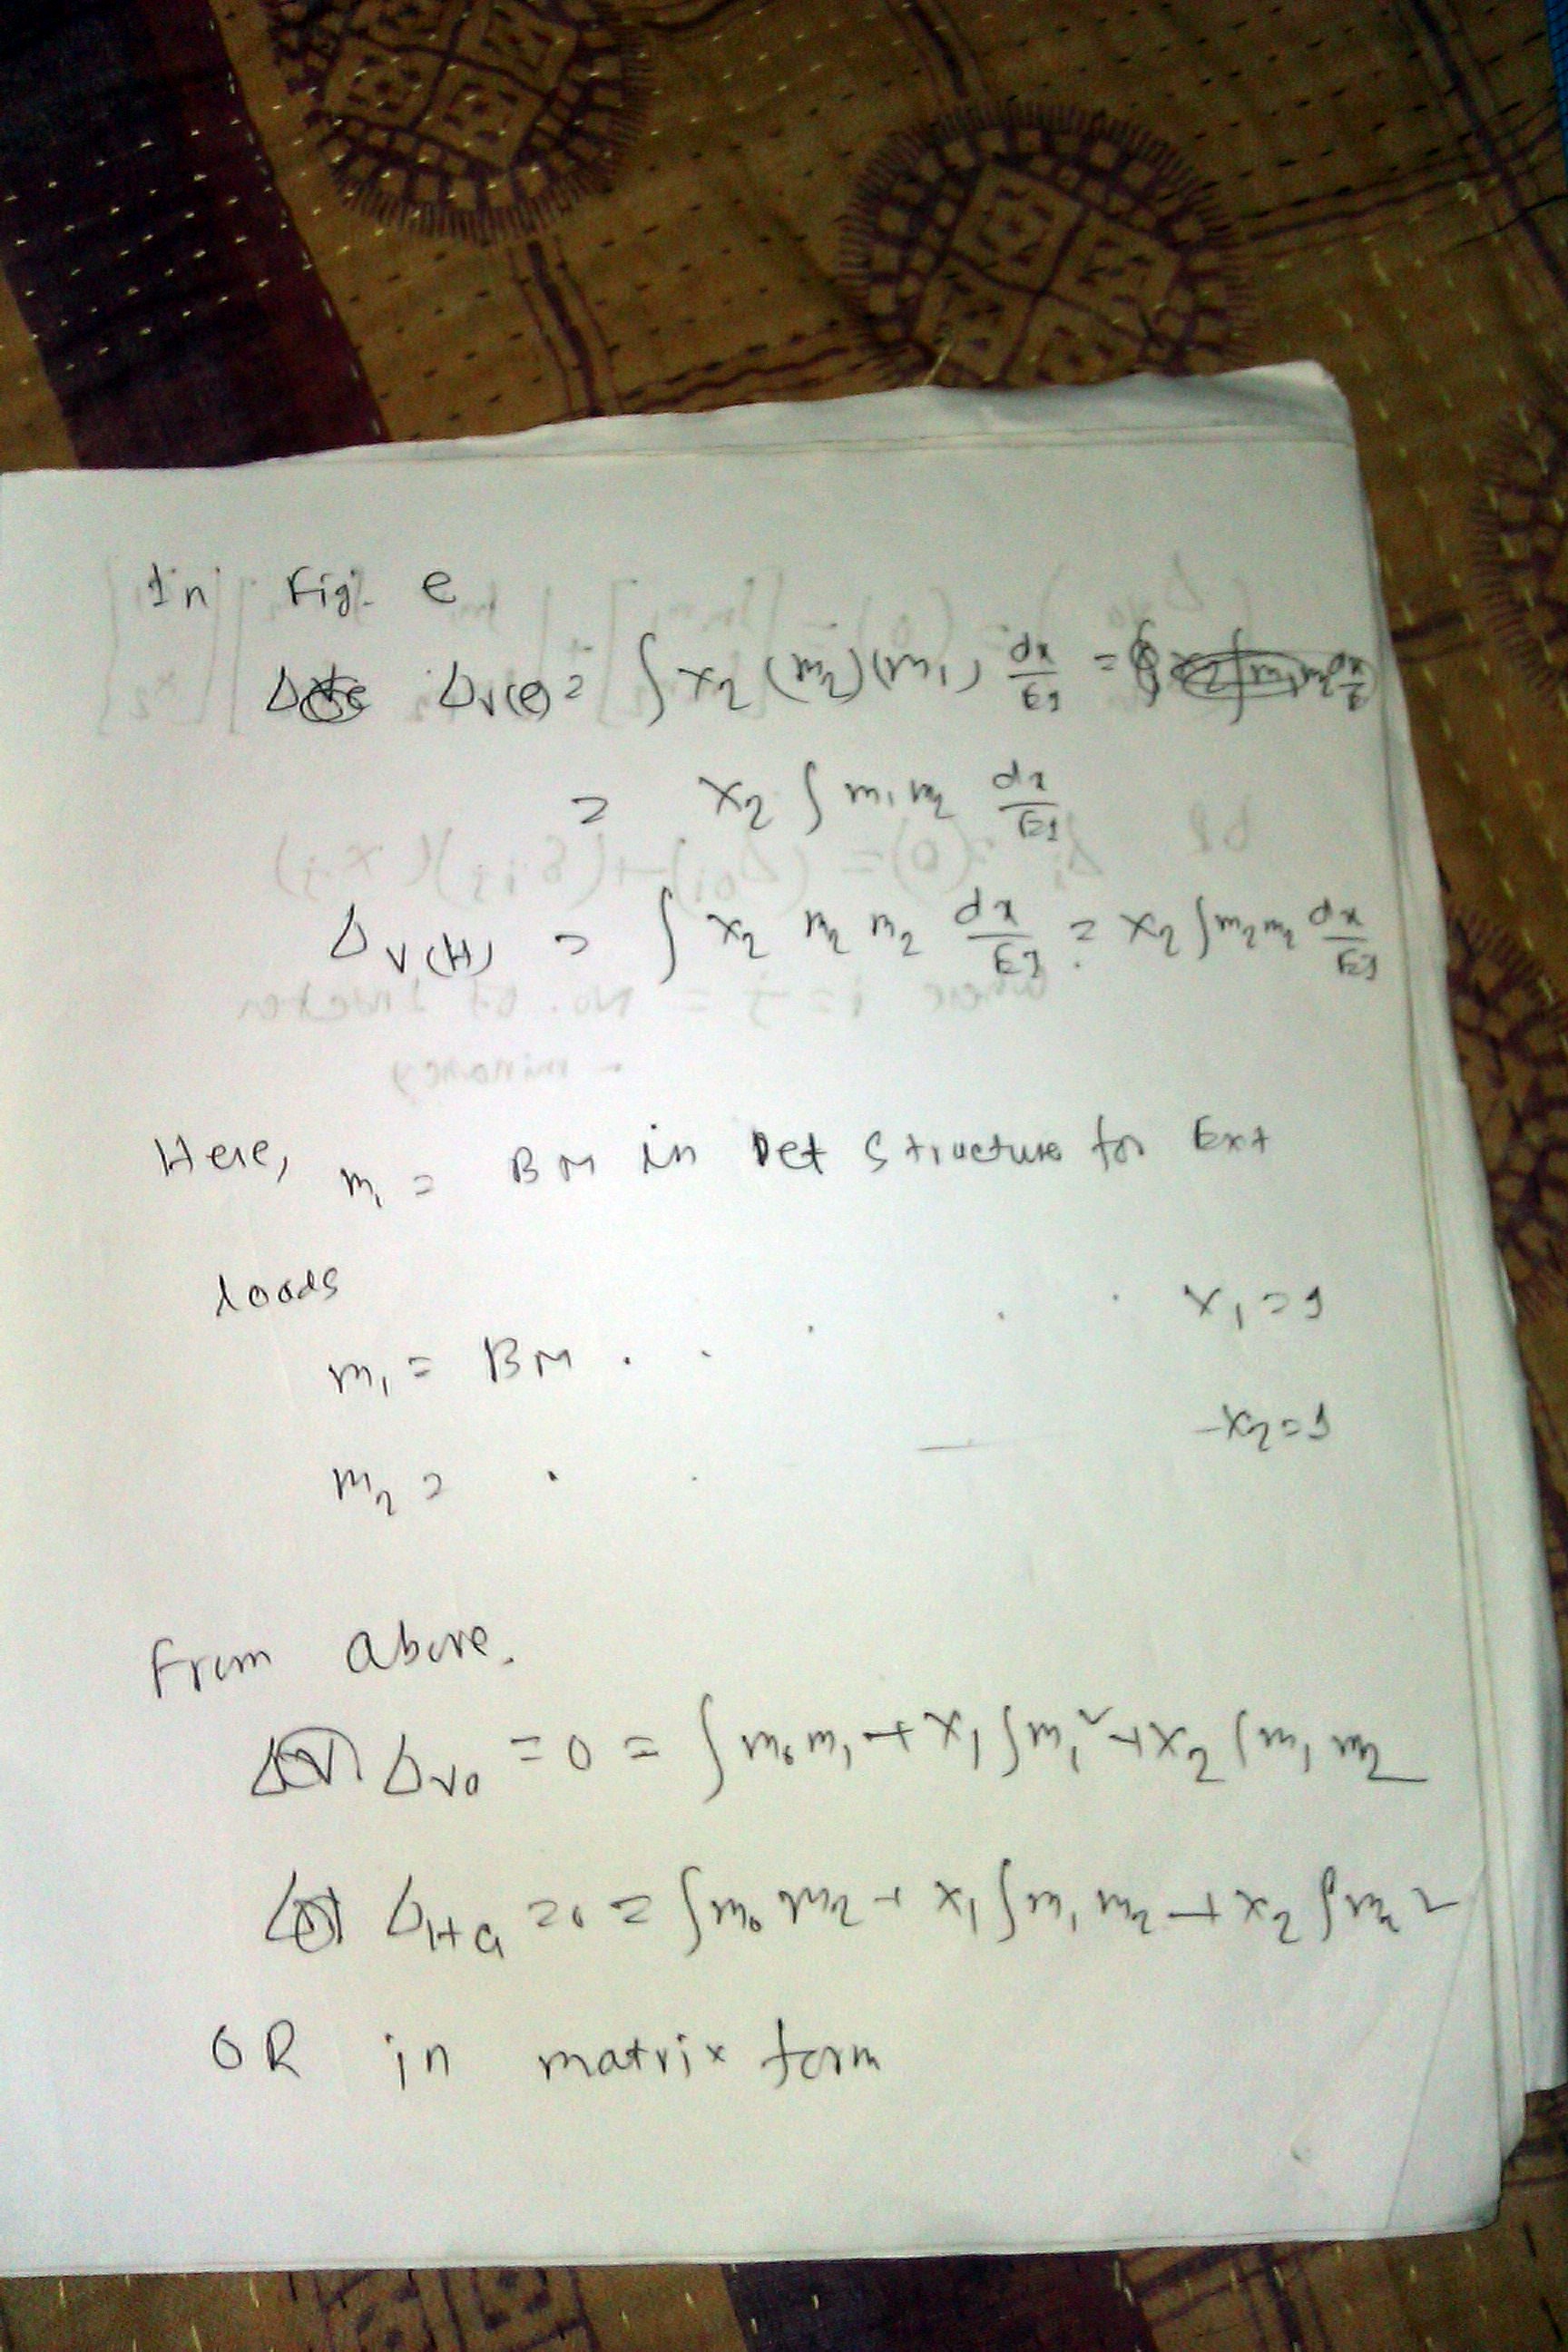 In Fig. e
Δv(e) = ∫ x2 (m2)(m1) dx/EI =
= x2 ∫ m1 m2 dx/EI
Δv(H) = ∫ x2 m2 m2 dx/EI = x2 ∫ m2 m2 dx/EI
Here, m1 = BM in Det Structure for Ext
loads
m1 = BM . . . . . x1 = 1
m2 = . . — x2 = 1
From above.
Δva = 0 = ∫ m0 m1 + x1 ∫ m1² + x2 ∫ m1 m2
ΔHa = 0 = ∫ m0 m2 + x1 ∫ m1 m2 + x2 ∫ m2²
OR in matrix form